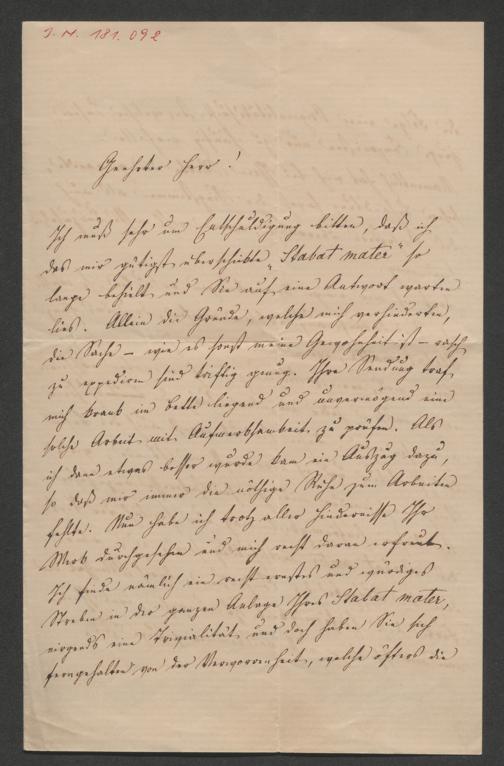 J. N. 181.092
Geehrter Herr!
Ich muß sehr um Entschuldigung bitten, daß ich
das mir gütigst überschickte „Stabat mater“ so
lange behielt und Sie auf eine Antwort warten
ließ. Allein die Gründe, welche mich verhinderten,
die Sache – wie es sonst meine Gewohnheit ist – rasch
zu expediren sind triftig genug. Ihre Sendung traf
mich krank im Bette liegend und unvermögend eine
solche Arbeit mit Aufmerksamkeit zu prüfen. Als
ich dann etwas besser wurde kam ein Auszug dazu,
so daß mir immer die nöthige Ruhe zum Arbeiten
fehlte. Nun habe ich trotz aller Hindernisse Ihr
Werk durchgesehen und mich recht daran erfreut.
Ich finde nämlich ein recht ernstes und würdiges
Streben in der ganzen Anlage Ihres Stabat mater,
nirgends eine Trivialität, und doch haben Sie sich
ferngehalten von der Verworrenheit, welche öfters die